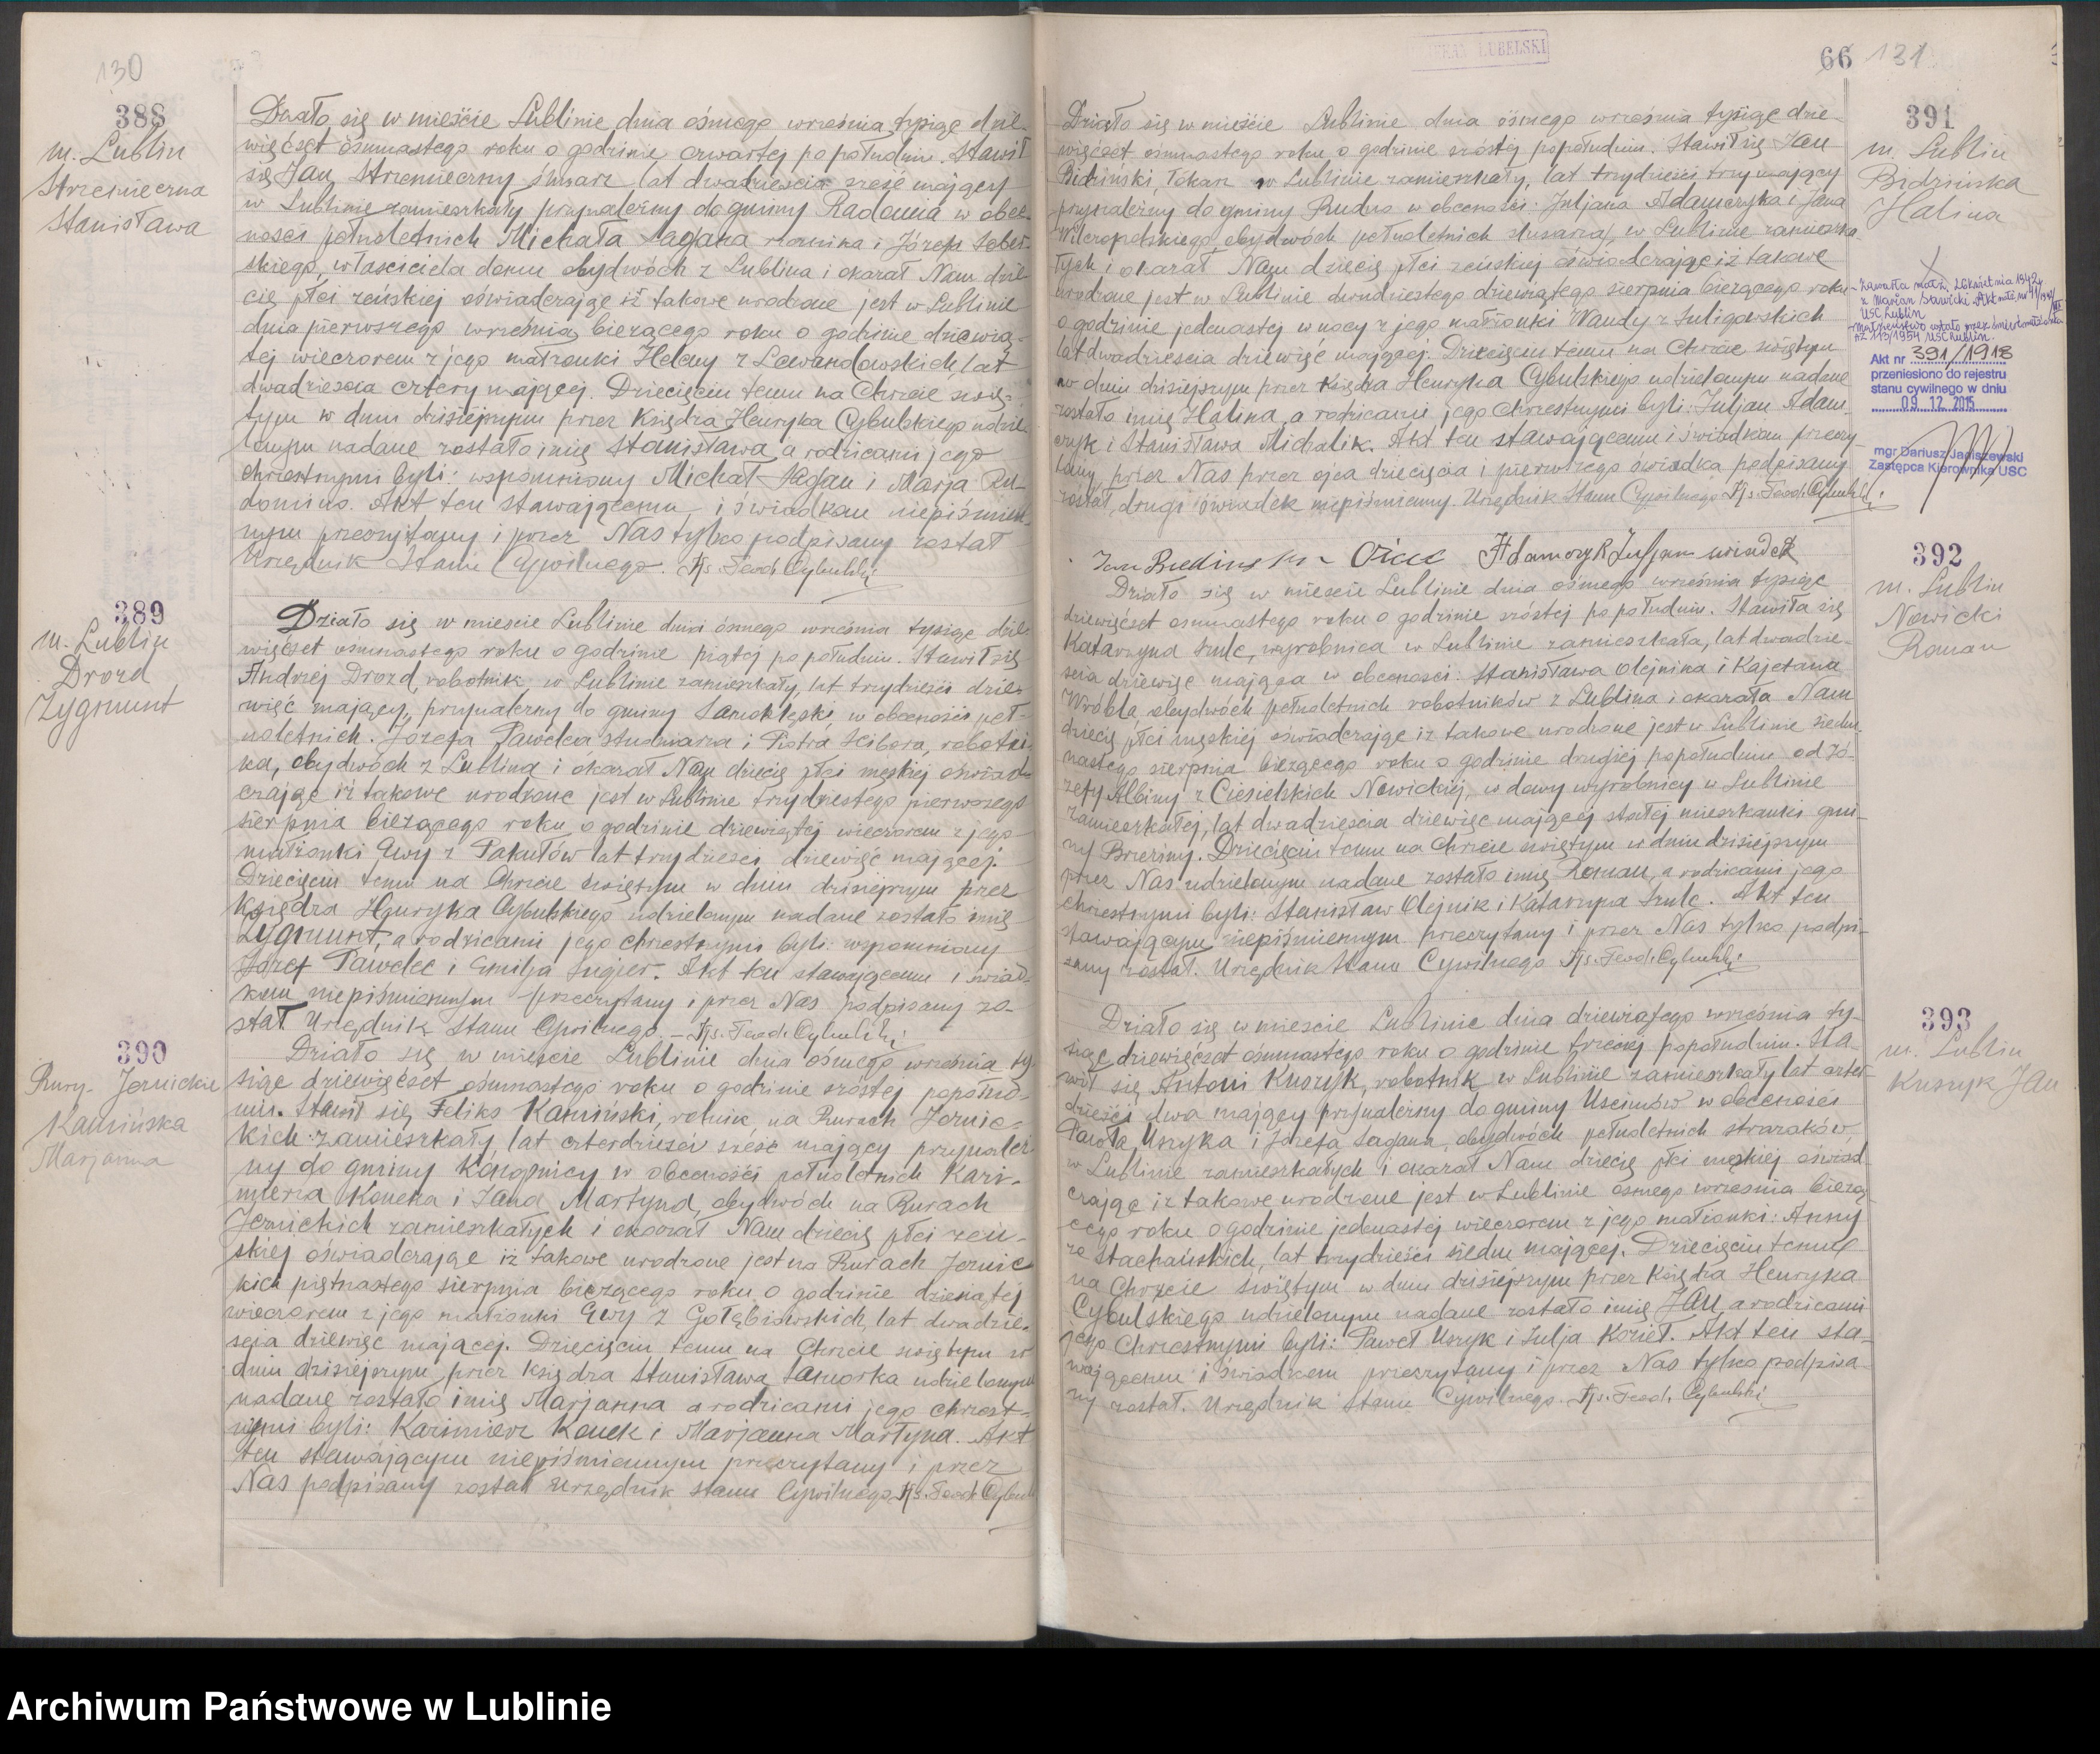 130
388
m. Lublin
Strzemieczna
Stanisława
Działo się w mieście Lublinie dnia ósmego września tysiąc dzie-
więćset ósmnastego roku o godzinie czwartej po południu. Stawił
się Jan Strzemieczny ślusarz lat dwadzieścia sześć mający
w Lublinie zamieszkały przynależny do gminy Radomia w obec-
ności pełnoletnich Michała Łagana i Józefa
skiego, właściciela domu obydwóch z Lublina i okazał Nam dzie-
cię płci żeńskiej oświadczając iż takowe urodzone jest w Lublinie
dnia pierwszego września bieżącego roku o godzinie dziewią-
tej wieczorem z jego małżonki Heleny z Lewandowskich, lat
dwadzieścia cztery mającej. Dziecięciu temu na Chrzcie świę-
tym w dniu dzisiejszym przez Księdza Henryka Cybulskiego udzie-
lonym nadane zostało imię Stanisława, a rodzicami jego
chrzestnymi byli: wspomniony Michał Łagan i Marja Ru-
domino. Akt ten stawającemu i świadkom niepiśmien-
nym przeczytany i przez Nas tylko podpisany został
Urzędnik Stanu Cywilnego. Ks. Teod. Cybulski
389
m. Lublin
Drozd
Zygmunt
Działo się w mieście Lublinie dnia ósmego września tysiąc dzie-
więćset ośmnastego roku o godzinie piątej po południu. Stawił się
Andrzej Drozd, robotnik w Lublinie zamieszkały, lat trzydzieści dzie-
więć mający, przynależny do gminy Samoklęski, w obecności peł-
noletnich. Józefa Pawelca studniarza i Piotra Hibora, robotni-
ka, obydwóch z Lublina i okazał Nam dziecię płci męskiej oświad-
czając iż takowe urodzone jest w Lublinie trzydziestego pierwszego
sierpnia bieżącego roku o godzinie dziewiątej wieczorem z jego
małżonki Ewy z Pakułów lat trzydzieści dziewięć mającej.
Dziecięciu temu na Chrzcie świętym w dniu dzisiejszym przez
Księdza Henryka Cybulskiego udzielonym nadane zostało imię
Zygmunt, a rodzicami jego chrzestnymi byli: wspomniony
Józef Pawelec i Emilja Sugier. Akt ten stawającemu i świad-
kom niepiśmiennym przeczytany i przez Nas podpisany zo-
stał. Urzędnik Stanu Cywilnego. – Ks. Teod. Cybulski
390
Rury-Jezuickie
Kamińska
Marjanna
Działo się w mieście Lublinie dnia ósmego września ty-
siąc dziewięćset ośmnastego roku o godzinie szóstej popołud-
niu. Stawił się Feliks Kamiński, rolnik, na Rurach Jezuic-
kich zamieszkały, lat czterdzieści sześć mający przynależ-
ny do gminy Konopnicy w obecności pełnoletnich Kazi-
mierza Koneka i Jana Martyna, obydwóch na Rurach
Jezuickich zamieszkałych i okazał Nam dziecię płci żeń-
skiej oświadczając iż takowe urodzone jest na Rurach Jezuic-
kich piętnastego sierpnia bieżącego roku o godzinie dziesiątej
wieczorem z jego małżonki Ewy z Gołębiowskich, lat dwadzie-
ścia dziewięć mającej. Dziecięciu temu na Chrzcie świętym w
dniu dzisiejszym przez księdza Stanisława Samorka udzielonym
nadane zostało imię Marjanna a rodzicami jego chrzest-
nymi byli: Kazimierz Konek i Marjanna Martyna. Akt
ten stawającym niepiśmiennym przeczytany i przez
Nas podpisany został Urzędnik Stanu Cywilnego. Ks. Teod. Cybul
LUBELSKI
66 131
391
m. Lublin
Bidzińska
Halina
Działo się w mieście Lublinie dnia ósmego września tysiąc dzie-
więćset ośmnastego roku o godzinie szóstej popołudniu. Stawił się Jan
Bidziński, tokarz w Lublinie zamieszkały, lat trzydzieści trzy mający
przynależny do gminy Rudno w obecności: Juljana Adamczyka i Jana
Wilczopolskiego, obydwóch pełnoletnich ślusarzy, w Lublinie zamieszka-
łych i okazał Nam dziecię płci żeńskiej oświadczając iż takowe
urodzone jest w Lublinie dwudziestego dziewiątego sierpnia bieżącego roku
o godzinie jedenastej w nocy z jego małżonki Wandy z Suligowskich
lat dwadzieścia dziewięć mającej. Dziecięciu temu na Chrzcie świętym
w dniu dzisiejszym przez Księdza Henryka Cybulskiego udzielonym nadane
zostało imię Halina, a rodzicami jego chrzestnymi byli: Juljan Adam-
czyk i Stanisława Michalik. Akt ten stawającemu i świadkom przeczy-
tany, przez Nas przez ojca dziecięcia i pierwszego świadka podpisany
został, drugi świadek niepiśmienny. Urzędnik Stanu Cywilnego. Ks. Teod. Cybulski
Jan Bidziński Ojciec Adamczyk Juljan świadek
Zawarła małż. 26 kwietnia 1942 r.
z Marian Sawicki. Akt małż. nr
USC Lublin
Małżeństwo ustało przez śmierć małżonka
AZ 113/1954 USC Lublin.
Akt nr 391/1918
przeniesiono do rejestru
stanu cywilnego w dniu
09. 12. 2015
mgr Dariusz Jaciszewski
Zastępca Kierownika USC
392
m. Lublin
Nowicki
Roman
Działo się w mieście Lublinie dnia ósmego września tysiąc
dziewięćset ośmnastego roku o godzinie szóstej po południu. Stawiła się
Katarzyna Szulc, wyrobnica w Lublinie zamieszkała, lat dwadzie-
ścia dziewięć mająca w obecności: Stanisława Olejnika i Kajetana
Wróbla, obydwóch pełnoletnich robotników z Lublina i okazała Nam
dziecię płci męskiej oświadczając iż takowe urodzone jest w Lublinie siedm-
nastego sierpnia bieżącego roku o godzinie drugiej popołudniu od Jó-
zefy Albiny z Ciesielskich Nowickiej, wdowy wyrobnicy w Lublinie
zamieszkałej, lat dwadzieścia dziewięć mającej stałej mieszkanki gmi-
ny Brzeziny. Dziecięciu temu na Chrzcie świętym w dniu dzisiejszym
przez Nas udzielonym nadane zostało imię Roman, a rodzicami jego
chrzestnymi byli: Stanisław Olejnik i Katarzyna Szulc. Akt ten
stawającym niepiśmiennym przeczytany i przez Nas tylko podpi-
sany został. Urzędnik Stanu Cywilnego Ks. Teod. Cybulski
393
m. Lublin
Kuszyk Jan
Działo się w mieście Lublinie dnia dziewiątego września ty-
siąc dziewięćset ośmnastego roku o godzinie trzeciej popołudniu. Sta-
wił się Antoni Kuszyk, robotnik w Lublinie zamieszkały lat czter-
dzieści dwa mający przynależny do gminy Uscimów w obecności
Pawła Uszyka i Józefa Łagana, obydwóch pełnoletnich strażaków,
w Lublinie zamieszkałych i okazał Nam dziecię płci męskiej oświad-
czając iż takowe urodzone jest w Lublinie ósmego września bieżą-
cego roku o godzinie jedenastej wieczorem z jego małżonki: Anny
ze Stachańskich, lat trzydzieści siedm mającej. Dziecięciu temu
na Chrzcie świętym w dniu dzisiejszym przez Księdza Henryka
Cybulskiego udzielonym nadane zostało imię Jan, a rodzicami
jego Chrzestnymi byli: Paweł Uszyk i Julja Kozieł. Akt ten sta-
wającemu i świadkom przeczytany i przez Nas tylko podpisa-
ny został. Urzędnik Stanu Cywilnego. Ks. Teod. Cybulski
Archiwum Państwowe w Lublinie